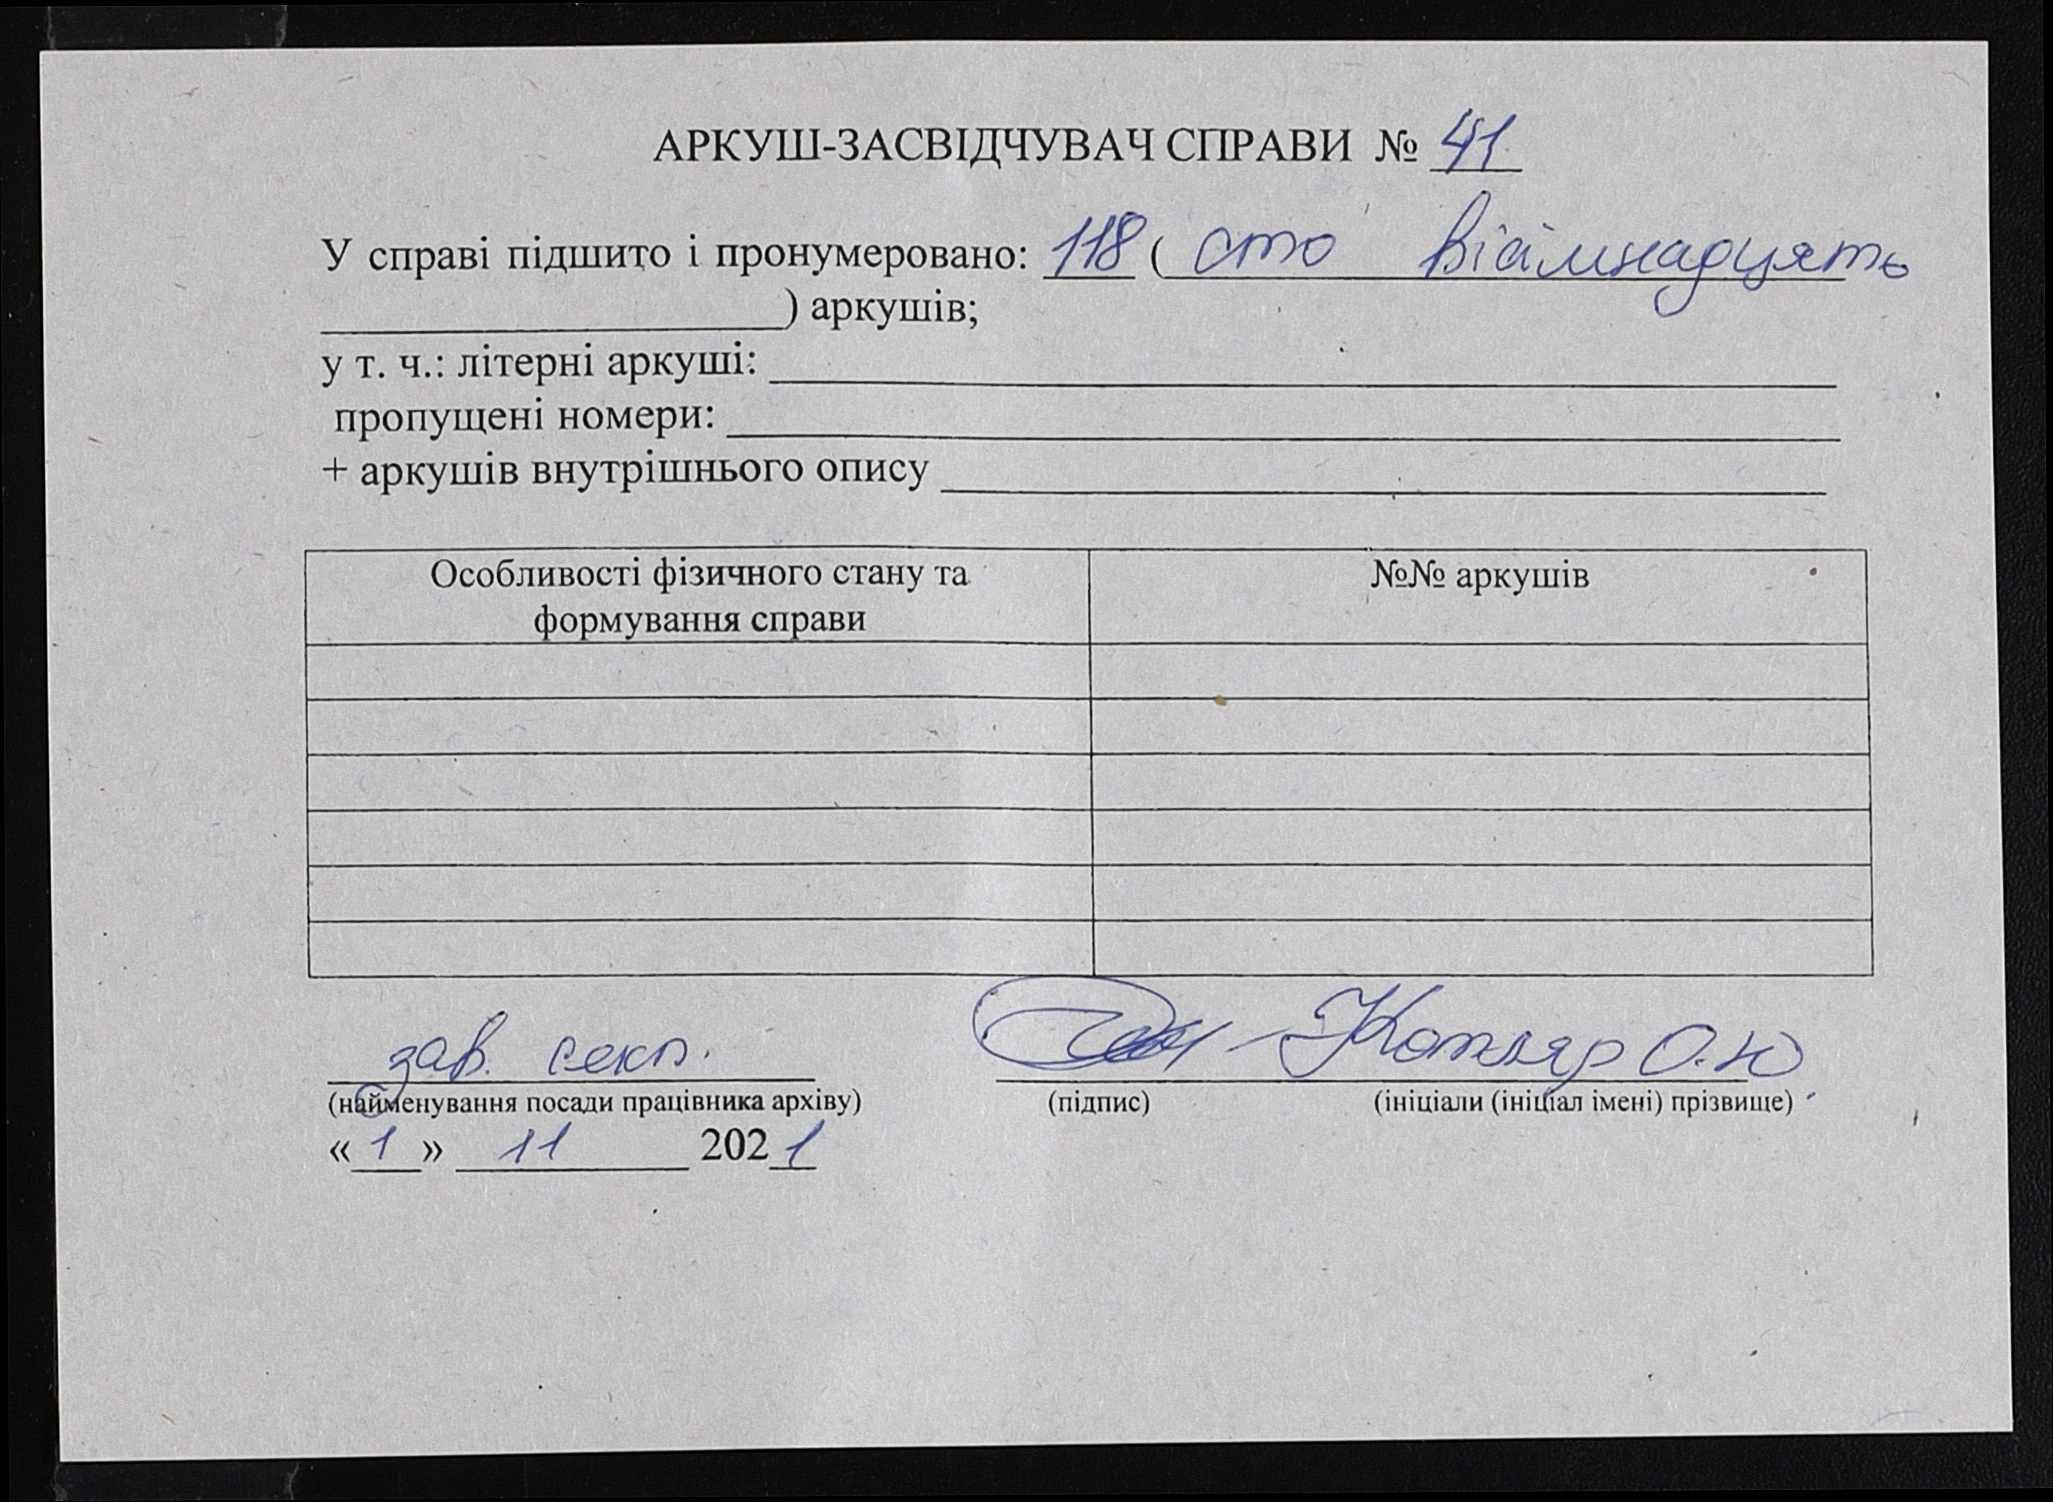 АРКУШ-ЗАСВІДЧУВАЧ СПРАВИ № 41
У справі підшито і пронумеровано: 118 ( сто вісімнадцять
) аркушів;
у т. ч.: літерні аркуші:
пропущені номери:
+ аркушів внутрішнього опису
Особливості фізичного стану та
формування справи
№№ аркушів
зав. сект. Котляр О.Ю
(найменування посади працівника архіву) (підпис) (ініціали (ініціал імені) прізвище)
«1» 11 2021